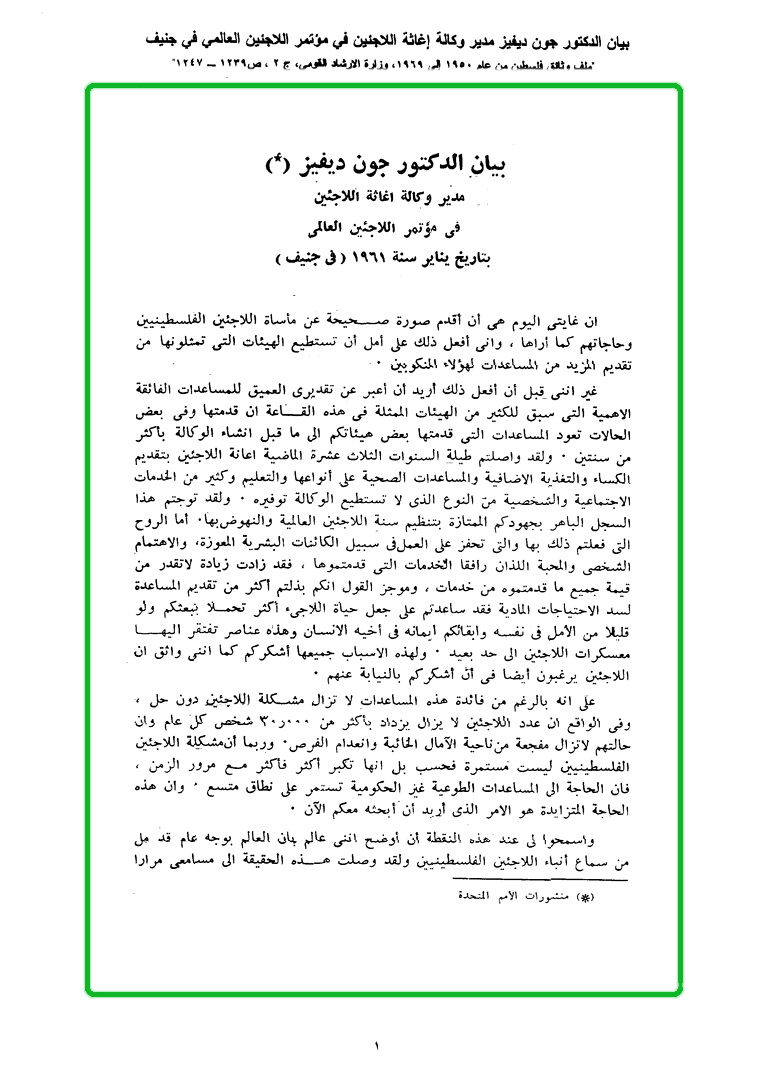 بيان الدكتور جون ديفيز مدير وكالة إغاثة اللاجئين في مؤتمر اللاجئين العالمي في جنيف
"ملف وثائق فلسطين من عام ١٩٥٠ إلى ١٩٦٩، وزارة الارشاد القومى، ج ٢ ، ص ١٢٣٩ – ١٢٤٧"
بيان الدكتور جون ديفيز (*)
مدير وكالة اغاثة اللاجئين
فى مؤتمر اللاجئين العالمى
بتاريخ يناير سنة ١٩٦١ ( فى جنيف )
ان غايتى اليوم هى أن أقدم صورة صـحيحة عن مأساة اللاجئين الفلسطينيين
وحاجاتهم كما أراها ، وانى أفعل ذلك على أمل أن تستطيع الهيئات التى تمثلونها من
تقديم المزيد من المساعدات لهؤلاء المنكوبين ٠
غير اننى قبل أن أفعل ذلك أريد أن أعبر عن تقديرى العميق للمساعدات الفائقة
الاهمية التى سبق للكثير من الهيئات الممثلة فى هذه القـاعة ان قدمتها وفى بعض
الحالات تعود المساعدات التى قدمتها بعض هيئاتكم الى ما قبل انشاء الوكالة بأكثر
من سنتين ٠ ولقد واصلتم طيلة السنوات الثلاث عشرة الماضية اعانة اللاجئين بتقديم
الكساء والتغذية الاضافية والمساعدات الصحية على أنواعها والتعليم وكثير من الخدمات
الاجتماعية والشخصية من النوع الذى لا تستطيع الوكالة توفيره ٠ ولقد توجتم هذا
السجل الباهر بجهودكم الممتازة بتنظيم سنة اللاجئين العالمية والنهوض بها٠ أما الروح
التى فعلتم ذلك بها والتى تحفز على العمل فى سبيل الكائنات البشرية المعوزة، والاهتمام
الشخصى والمحبة اللذان رافقا الخدمات التى قدمتموها ، فقد زادت زيادة لاتقدر من
قيمة جميع ما قدمتموه من خدمات ، وموجز القول انكم بذلتم أكثر من تقديم المساعدة
لسد الاحتياجات المادية فقد ساعدتم على جعل حياة اللاجىء أكثر تحمـلا ببعثكم ولو
قليلا من الأمل فى نفسه وابقائكم ايمانه فى أخيه الانسان وهذه عناصر تفتقر اليهـا
معسكرات اللاجئين الى حد بعيد ٠ ولهذه الاسباب جميعها أشكركم كما اننى واثق ان
اللاجئين يرغبون أيضا فى أن أشكركم بالنيابة عنهم ٠
على انه بالرغم من فائدة هذه المساعدات لا تزال مشـكلة اللاجئين دون حل ،
وفى الواقع ان عدد اللاجئين لا يزال يزداد بأكثر من ٣٠ر٠٠٠ شخص كل عام وان
حالتهم لاتزال مفجعة من ناحية الآمال الخائبة وانعدام الفرص٠ وربما أن مشكلة اللاجئين
الفلسطينيين ليست مستمرة فحسب بل انها تكبر أكثر فأكثر مـع مرور الزمن ،
فان الحاجة الى المساعدات الطوعية غير الحكومية تستمر على نطاق متسع ٠ وان هذه
الحاجة المتزايدة هو الامر الذى أريد أن أبحثه معكم الآن ٠
واسمحوا لى عند هذه النقطة أن أوضح اننى عالم بان العالم بوجه عام قد مل
من سماع أنباء اللاجئين الفلسطينيين ولقد وصلت هـذه الحقيقة الى مسامعى مرارا
(*) منشورات الأمم المتحدة
١